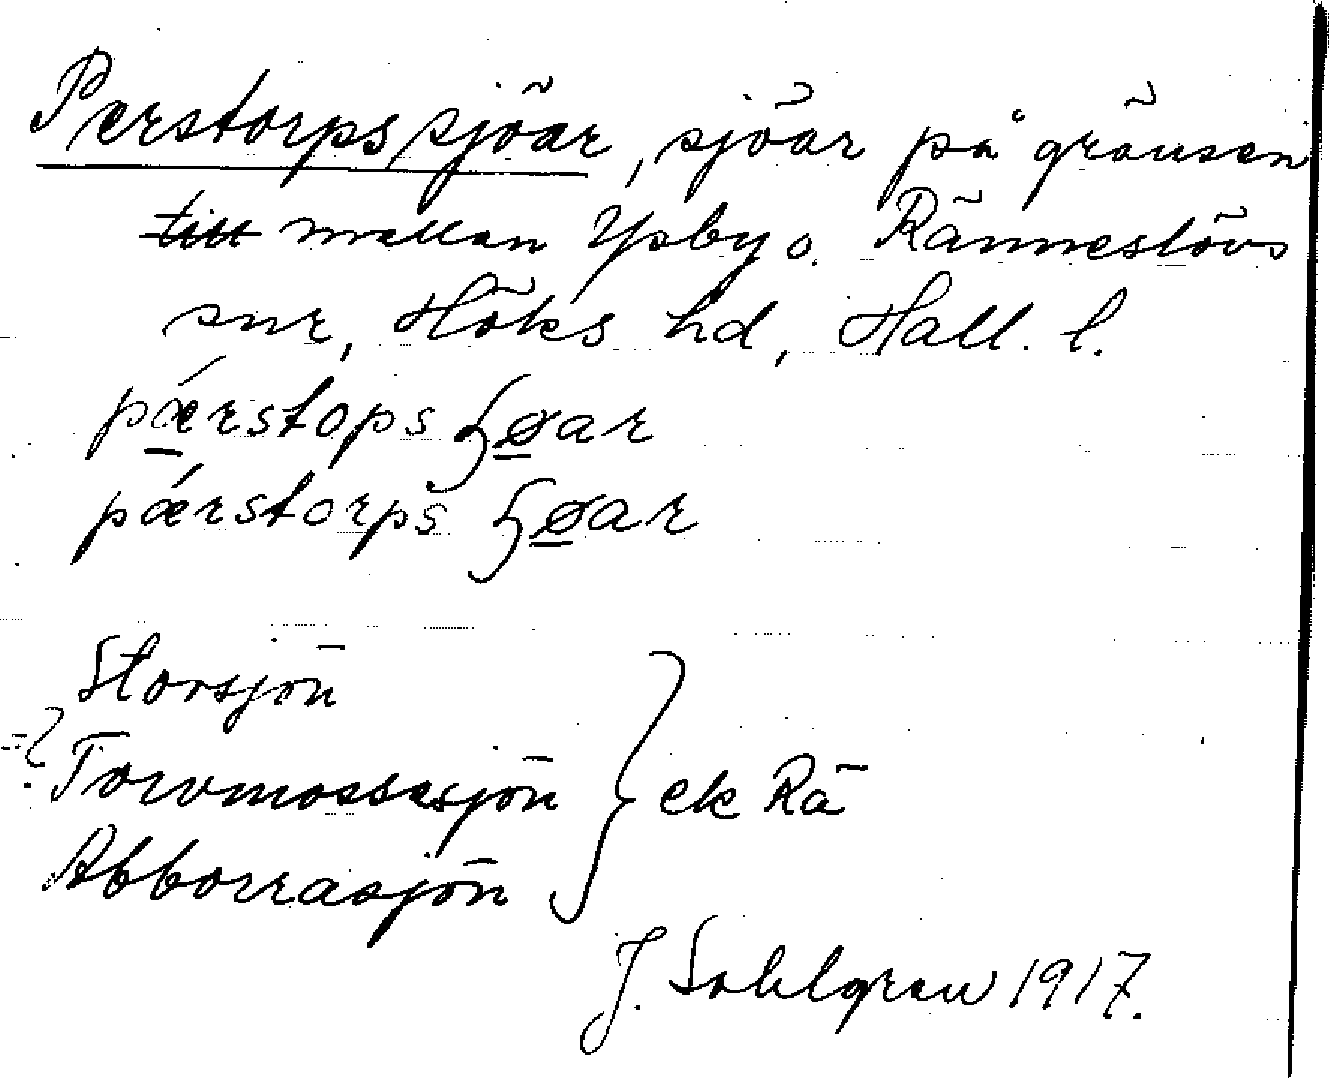 Pærstorpssjöar, sjöar på gränsen
till mellan Ysby o. Ränneslövs
snr, Höks hd, Hall. l.
pǽrstops ɧøar
pǽrstorps ɧøar
Storsjön
=? Torvmossesjön } ek Rä
Abborrasjön
J. Sahlgren 1917.